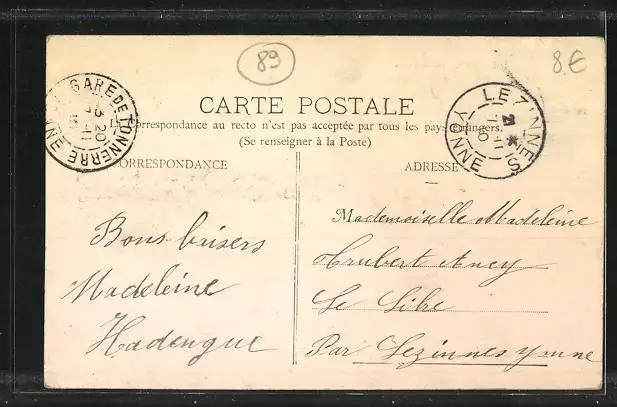 89
8€
GARE DE TONNERRE
YONNE
3 20
LEZINNES
YONNE
21
CARTE POSTALE
Correspondance au recto n'est pas acceptée par tous les pays étrangers.
(Se renseigner à la Poste)
CORRESPONDANCE
ADRESSE
Mademoiselle Madeleine
Bons baisers
Madeleine
Hadengue
Par Lezinnes Yonne